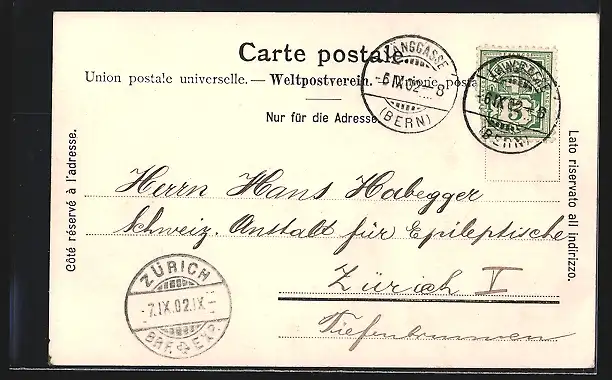 Carte postale.
Union postale universelle. — Weltpostverein. — Unione posta
Nur für die Adresse
Côté réservé à l'adresse.
Lato riservato all indirizzo.
LÄNGGASSE
-6.IX.02.-8
(BERN)
LÄNGGASSE
-6.IX.02.-8
(BERN)
5
Herrn Hans Habegger
Schweiz. Anstalt für Epileptische
Zürich V
Tiefenbrunnen
ZÜRICH
-7.IX.02.IX-
BRF. EXP.